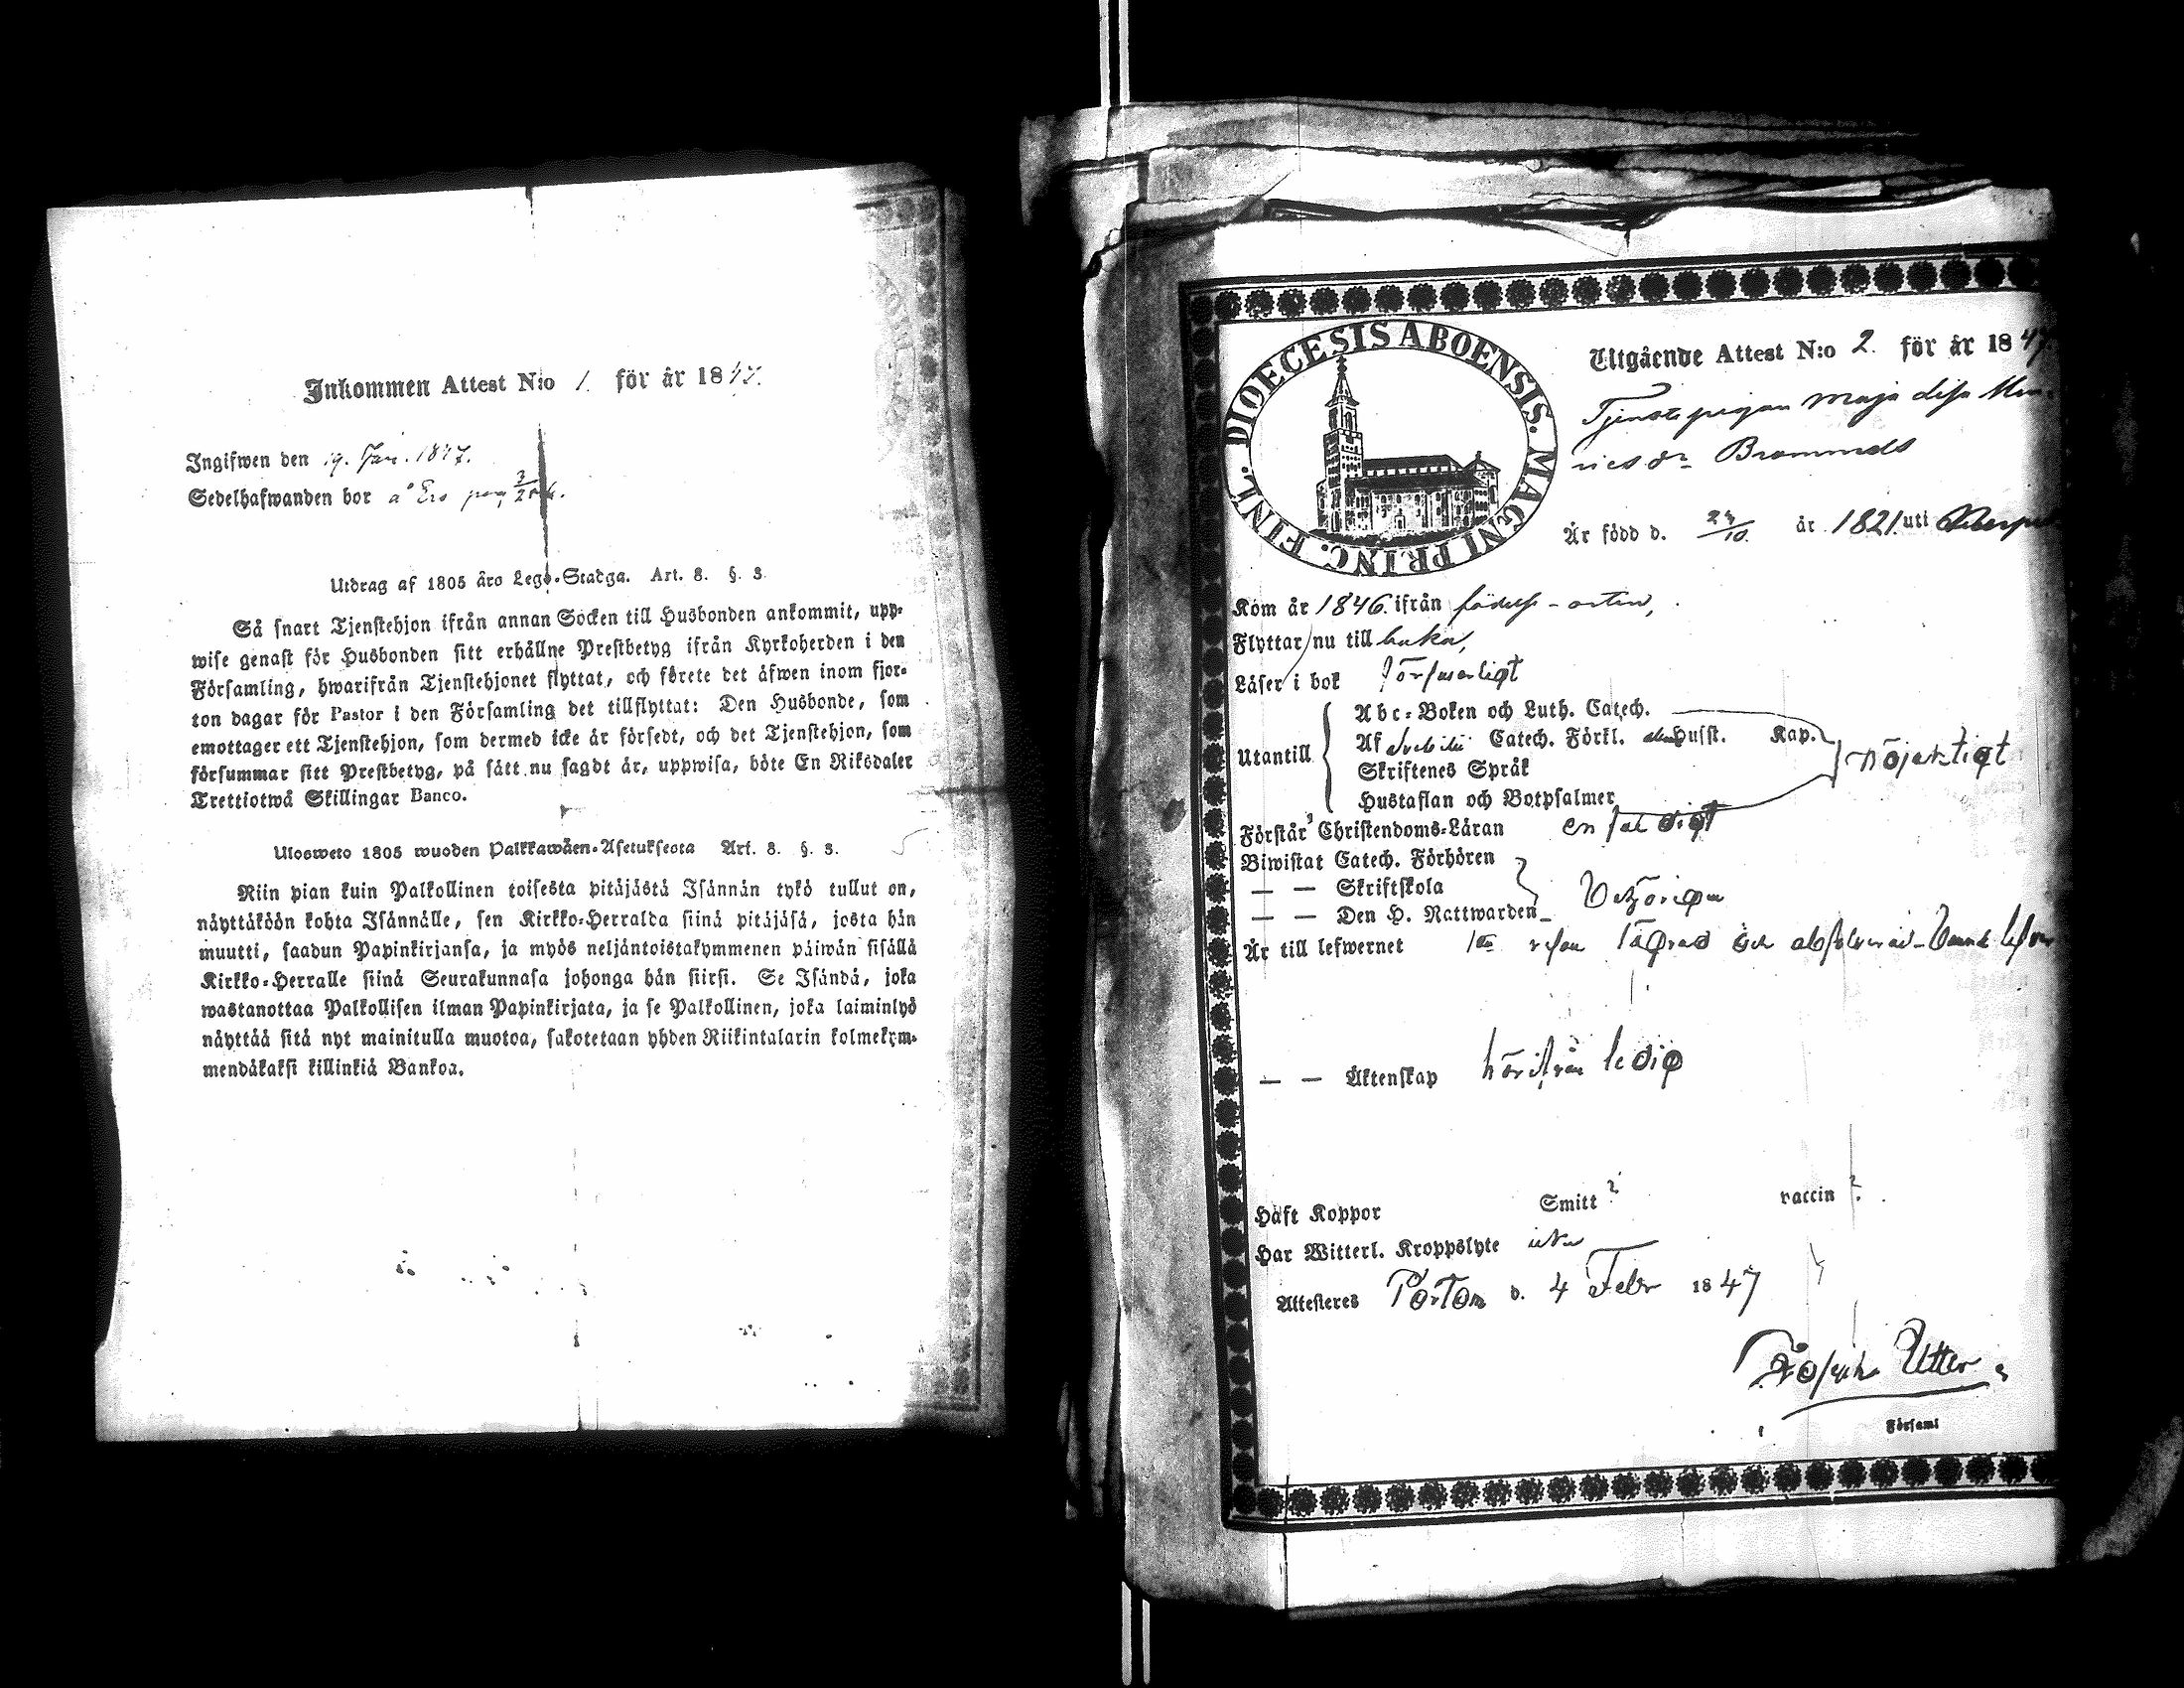 Inkommen Attest N:o 1. för år 1847.
Ingifwen den 19. Jan. 1847.
Sedelhafwanden bor å
Utdrag af 1805 års Lego-Stadga. Art. 8. §. 3.
Så snart Tjenstehjon ifrån annan Socken till Husbonden ankommit, upp-
wise genast för Husbonden sitt erhållne Prestbetyg ifrån Kyrkoherden i den
Församling, hwarifrån Tjenstehjonet flyttat, och förete det äfwen inom fjor-
ton dagar för Pastor i den Församling det tillflyttat: Den Husbonde, som
emottager ett Tjenstehjon, som dermed icke är försedt, och det Tjenstehjon, som
försummar sitt Prestbetyg, på sätt nu sagdt är, uppwisa, böte En Riksdaler
Trettiotwå Skillingar Banco.
Ulosweto 1805 wuoden Palkkawäen-Asetuksesta Art. 8. §. 3.
Niin pian kuin Palkollinen toisesta pitäjästä Isännän tykö tullut on,
näyttäköön kohta Isännälle, sen Kirkko-Herralda siinä pitäjäsä, josta hän
muutti, saadun Papinkirjansa, ja myös neljäntoistakymmenen päiwän sisällä
Kirkko-Herralle siinä Seurakunnasa johonga hän siirsi. Se Isändä, joka
wastanottaa Palkollisen ilman Papinkirjata, ja se Palkollinen, joka laiminlyö
näyttää sitä nyt mainitulla muotoa, sakotetaan yhden Riikintalarin kolmekym-
mendäkaksi killinkiä Bankoa.
DIOECESIS ABOENSIS. MAGNI PRINC. FINL.
Utgående Attest N:o 2. för år 1847.
Tjenstepigan Maja Lisa
Är född d. 24/10. år 1821. uti
Kom år 1846. ifrån födelse-orten,
Flyttar nu till baka,
Läser i bok försvarligt
Abc-Boken och Luth. Catech.
Utantill Af Svebilii Catech. Förkl. Husst. Kap. nöjaktigt
Skriftenes Språk
Hustaflan och Botpsalmer
Förstår Christendoms-Läran enfaldigt
Biwistat Catech. Förhören
— — Skriftskola
— — Den H. Nattwarden
Är till lefwernet
— — Äktenskap härifrån ledig
Haft Koppor Smitt ? vaccin ?
Har Witterl. Kroppslyte
Attesteres Pörtom d. 4 Febr 1847
Utter
Församl